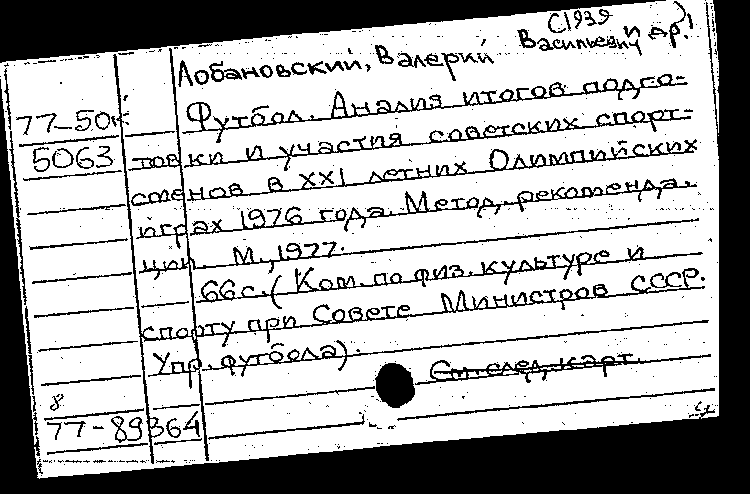 (1939
Лобановский, Валерий Васильевич и др.)
77-50к Футбол. Анализ итогов подго-
5063 товки и участия советских спорт-
сменов в XXI летних Олимпийских
играх 1976 года. Метод. рекоменда-
ции. М., 1977.
66 с. (Ком. по физ. культуре и
спорту при Совете Министров СССР.
Упр. футбола).
См. след. карт.
8
77-89364